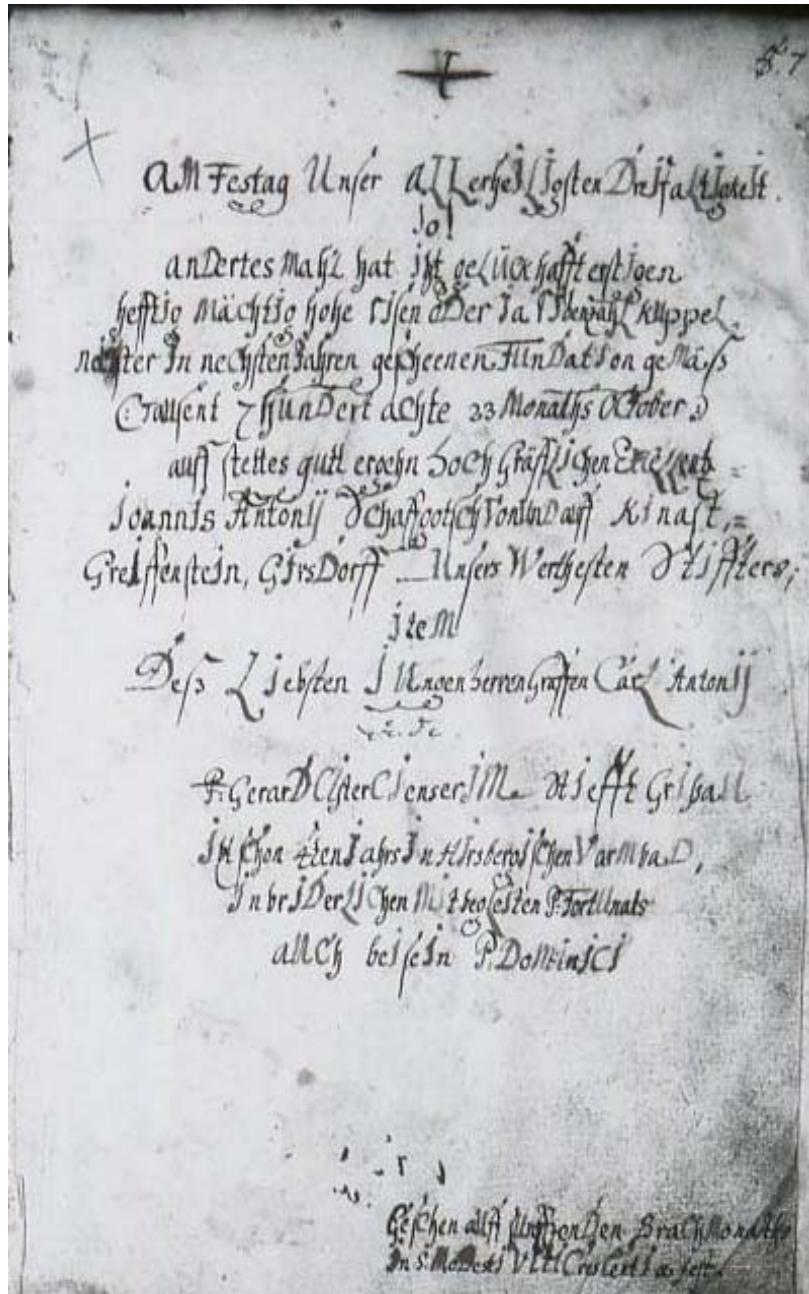 aM Festag Unser aLLerheiLIgsten DreifaLtIgkeit.
Jo!
anDertes MahL hat iht geLückhafft erstIgen
hefftig Mächtig hohe risen oDer la KuppeL
in nechsten Jahren gescheenen FUnDatIon geMäß
(: Tausent 7 hUnDert achte 23 Monaths October :)
auff stettes gutt hoch GräffLichen ExceLLentz =
Joannis Antonij Schaffgotsch Von UnD auff Kinast, =
Greiffenstein, GirsDorff Unsers Werthesten Stiffters;
iteM
Deß LIebsten JUngen herren Graffen CarL Antonij
P: GerarD CIsterCIenser iM StIefft GrIßaU
iht schon Jahrs In HIrsbergIschen VarMbaD,
In brIDerLIChen P: FortUnats
aUCh beIseIn P: DoMInICI
GesChen aUff BraChMonaths
In S: MoDestI VItI CresCentIæ fest.